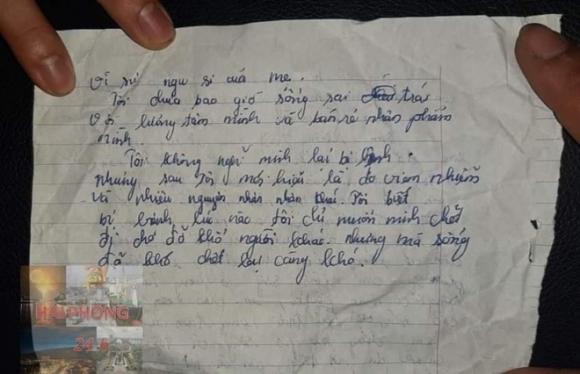 Vì sự ngu si của mẹ.
Tôi chưa bao giờ sống sai trái
với lương tâm mình và bán rẻ nhân phẩm
mình.
Tôi không nghĩ mình lại bị bệnh.
nhưng sau tôi mới hiểu là do viêm nhiễm
và nhiều nguyên nhân khác. Tôi biết
bị bệnh lúc nào tôi chỉ muốn mình chết
đi cho đỡ khổ người khác. nhưng mà sống
đã khó chết lại càng khó.
HAIPHONG
24.6